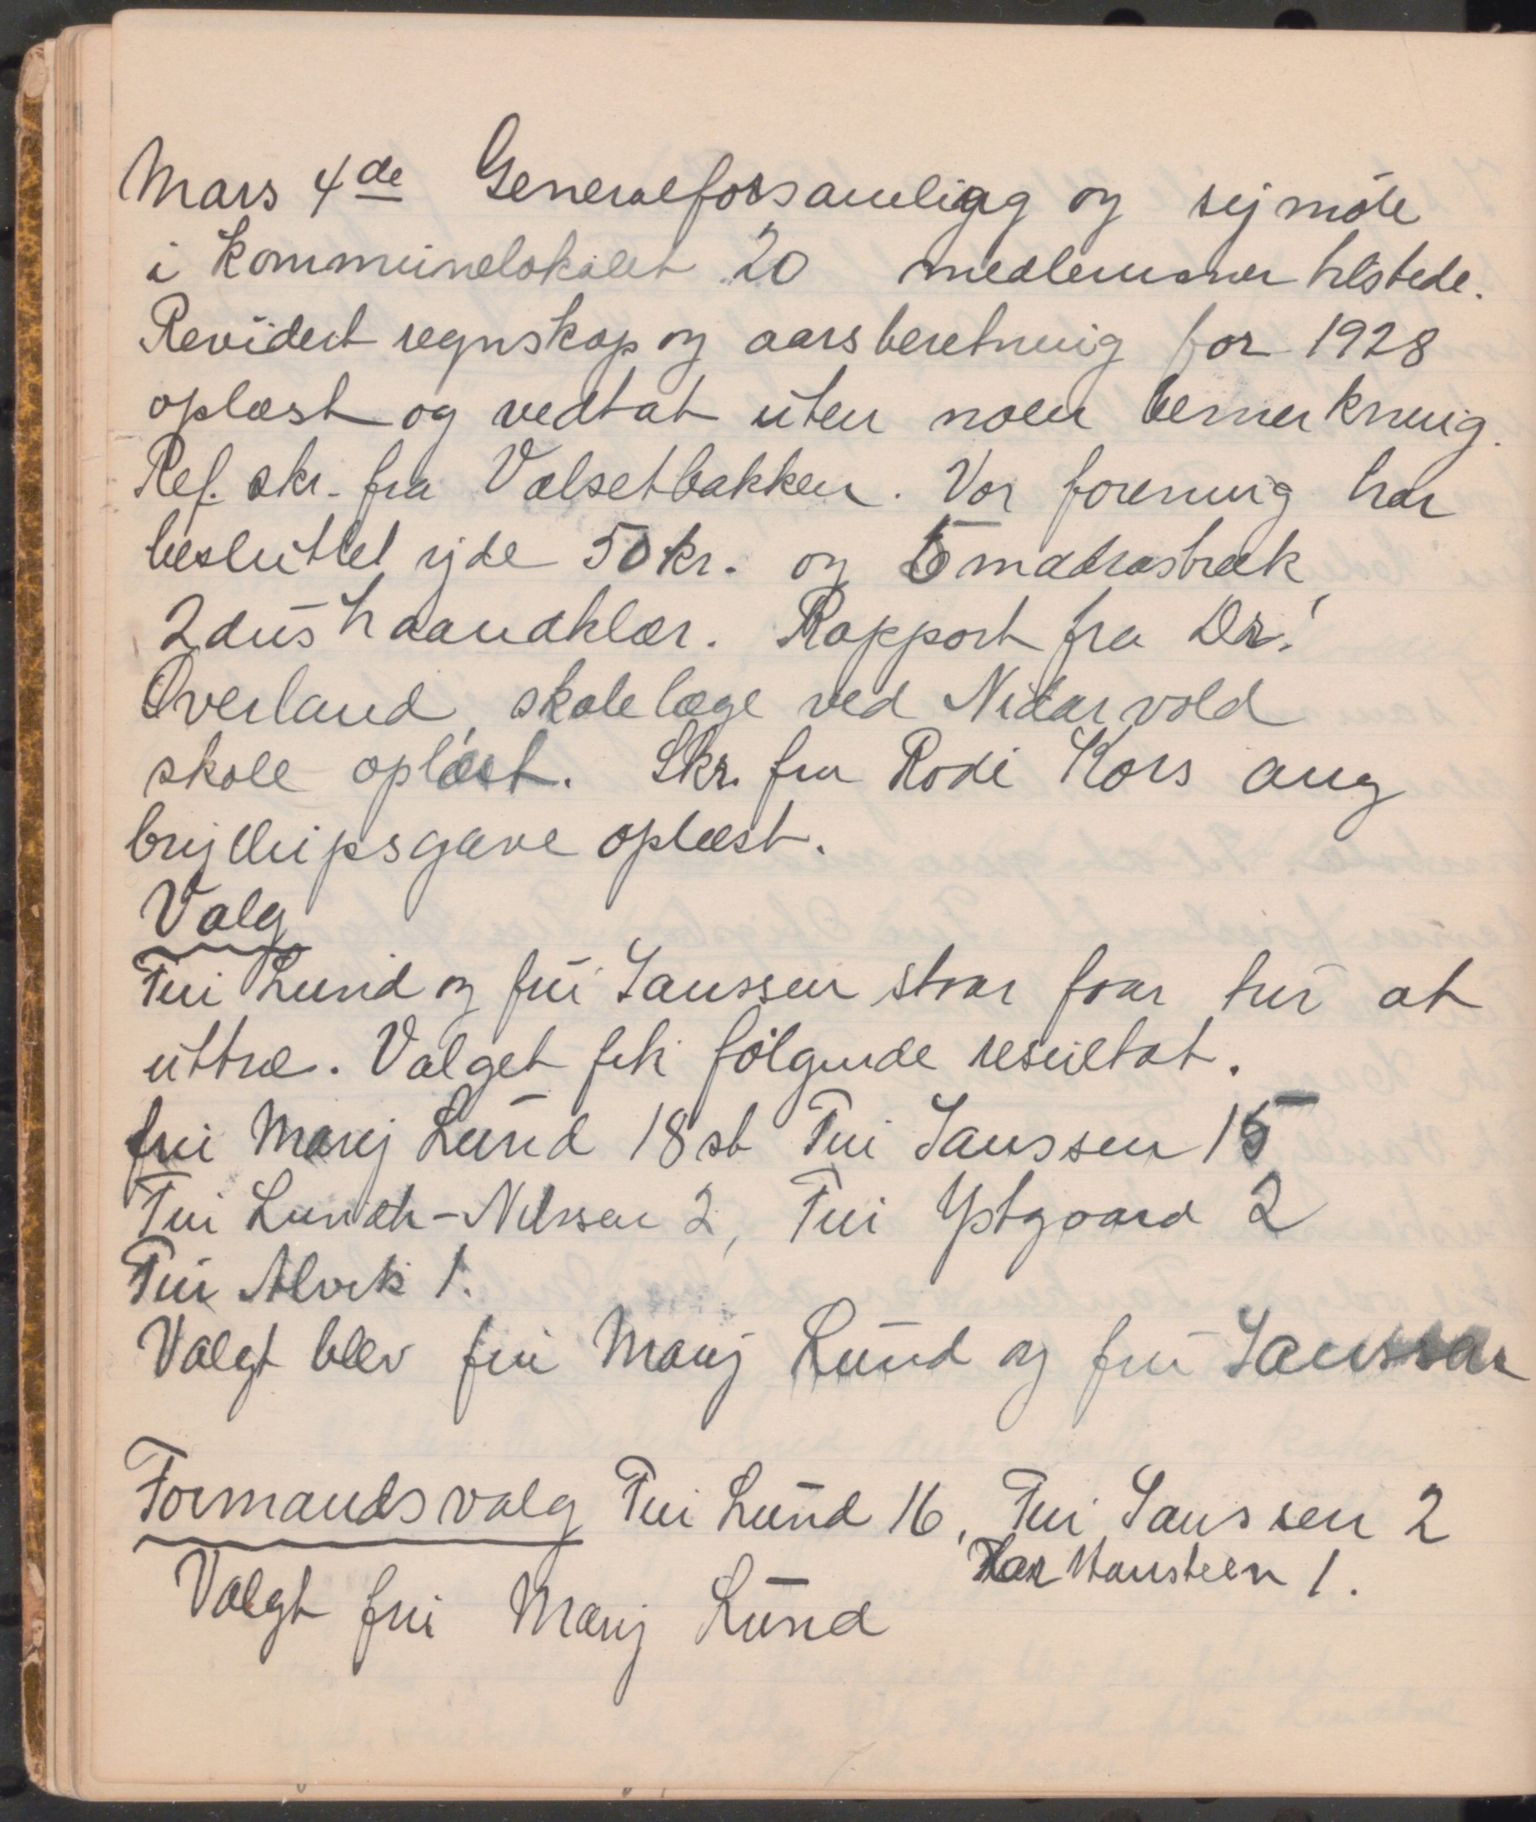 Mars 4de Generalforsamling og symöte
i kommunelokalet 20 medlemmer tilstede.
Revidert regnskap og aarsberetning for 1928
oplæst og vedtat uten noen bemerkning.
Ref. skr. fra Valsetbakken. Vor forening har
besluttet yde 50 kr. og 5 madrastræk,
2 dus haandklær. Rapport fra Dr.
Overland, skolelæge ved Nidarvold
skole oplæst. Skr. fra Rode Kors ang
bryllupsgave oplæst.
Valg
Fru Lund og fru Janssen staar for tur at
uttræ. Valget fik følgende resultat.
fru Mary Lund 18 st Fru Janssen 15
Fru Lundh-Nilssen 2, Fru Ystgaard 2
Fru Alvik 1.
Valgt blev fru Mary Lund og fru Janssen
Formandsvalg Fru Lund 16, Fru Janssen 2
Hansteen 1.
Valgt fru Mary Lund